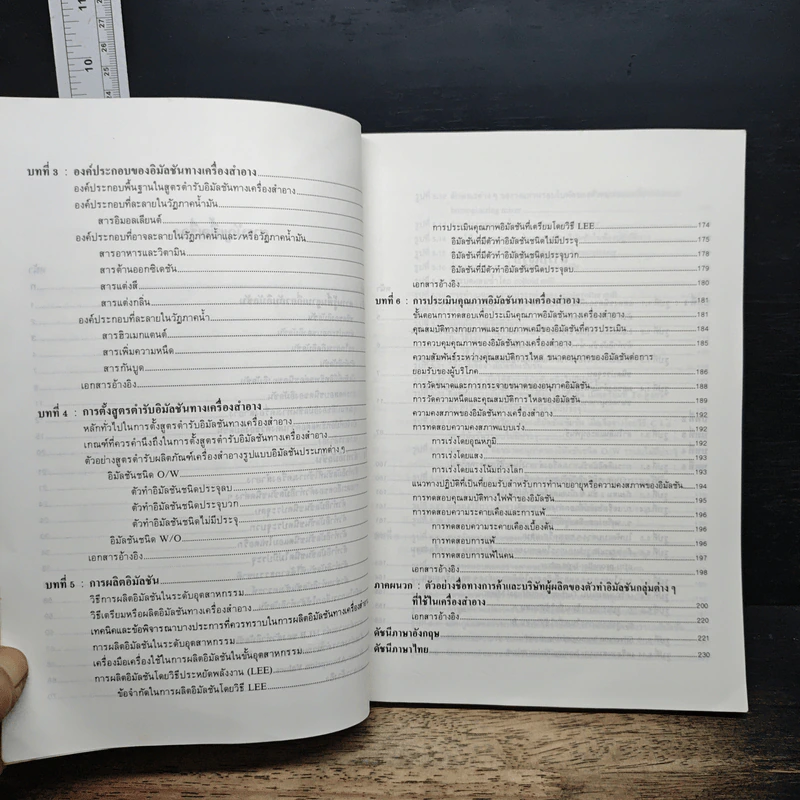 11
10
27
26
25
24
บทที่ 3 : องค์ประกอบของอิมัลชันทางเครื่องสำอาง
องค์ประกอบพื้นฐานในสูตรตำรับอิมัลชันทางเครื่องสำอาง
องค์ประกอบที่ละลายในวัฏภาคน้ำมัน
สารอิมอลเลียนต์
องค์ประกอบที่อาจละลายในวัฏภาคน้ำและ/หรือวัฏภาคน้ำมัน
สารอาหารและวิตามิน
สารต้านออกซิเดชัน
สารแต่งสี
สารแต่งกลิ่น
องค์ประกอบที่ละลายในวัฏภาคน้ำ
สารฮิวเมกแตนต์
สารเพิ่มความหนืด
สารกันบูด
เอกสารอ้างอิง
บทที่ 4 : การตั้งสูตรตำรับอิมัลชันทางเครื่องสำอาง
หลักทั่วไปในการตั้งสูตรตำรับอิมัลชันทางเครื่องสำอาง
เกณฑ์ที่ควรคำนึงถึงในการตั้งสูตรตำรับอิมัลชันทางเครื่องสำอาง
ตัวอย่างสูตรตำรับผลิตภัณฑ์เครื่องสำอางรูปแบบอิมัลชันประเภทต่าง ๆ
อิมัลชันชนิด O/W
ตัวทำอิมัลชันชนิดประจุลบ
ตัวทำอิมัลชันชนิดประจุบวก
ตัวทำอิมัลชันชนิดไม่มีประจุ
อิมัลชันชนิด W/O
เอกสารอ้างอิง
บทที่ 5 : การผลิตอิมัลชัน
วิธีการผลิตอิมัลชันในระดับอุตสาหกรรม
วิธีเตรียมหรือผลิตอิมัลชันทางเครื่องสำอาง
เทคนิคและข้อพิจารณาบางประการที่ควรทราบในการผลิตอิมัลชันทางเครื่องสำอาง
การผลิตอิมัลชันในระดับอุตสาหกรรม
เครื่องมือเครื่องใช้ในการผลิตอิมัลชันในขั้นอุตสาหกรรม
การผลิตอิมัลชันโดยวิธีประหยัดพลังงาน (LEE)
ข้อจำกัดในการผลิตอิมัลชันโดยวิธี LEE
การประเมินคุณภาพอิมัลชันที่เตรียมโดยวิธี LEE 174
อิมัลชันที่มีตัวทำอิมัลชันชนิดไม่มีประจุ 175
อิมัลชันที่มีตัวทำอิมัลชันชนิดประจุบวก 178
อิมัลชันที่มีตัวทำอิมัลชันชนิดประจุลบ 179
เอกสารอ้างอิง 180
บทที่ 6 : การประเมินคุณภาพอิมัลชันทางเครื่องสำอาง 181
ขั้นตอนการทดสอบเพื่อประเมินคุณภาพอิมัลชันทางเครื่องสำอาง 181
คุณสมบัติทางกายภาพและกายภาพเคมีของอิมัลชันที่ควรประเมิน 184
การควบคุมคุณภาพของอิมัลชันทางเครื่องสำอาง 185
ความสัมพันธ์ระหว่างคุณสมบัติการไหล ขนาดอนุภาคของอิมัลชันต่อการ
ยอมรับของผู้บริโภค 186
การวัดขนาดและการกระจายขนาดของอนุภาคอิมัลชัน 188
การวัดความหนืดและคุณสมบัติการไหลของอิมัลชัน 189
ความคงสภาพของอิมัลชันทางเครื่องสำอาง 192
การทดสอบความคงสภาพแบบเร่ง 192
การเร่งโดยอุณหภูมิ 192
การเร่งโดยแสง 193
การเร่งโดยแรงโน้มถ่วงโลก 193
แนวทางปฏิบัติที่เป็นที่ยอมรับสำหรับการทำนายอายุหรือความคงสภาพของอิมัลชัน 194
การทดสอบคุณสมบัติทางไฟฟ้าของอิมัลชัน 195
การทดสอบความระคายเคืองและการแพ้ 196
การทดสอบความระคายเคืองเบื้องต้น 196
การทดสอบการแพ้ 196
การทดสอบการแพ้ในคน 197
เอกสารอ้างอิง 198
ภาคผนวก : ตัวอย่างชื่อทางการค้าและบริษัทผู้ผลิตของตัวทำอิมัลชันกลุ่มต่าง ๆ
ที่ใช้ในเครื่องสำอาง 200
เอกสารอ้างอิง 220
ดัชนีภาษาอังกฤษ 221
ดัชนีภาษาไทย 230